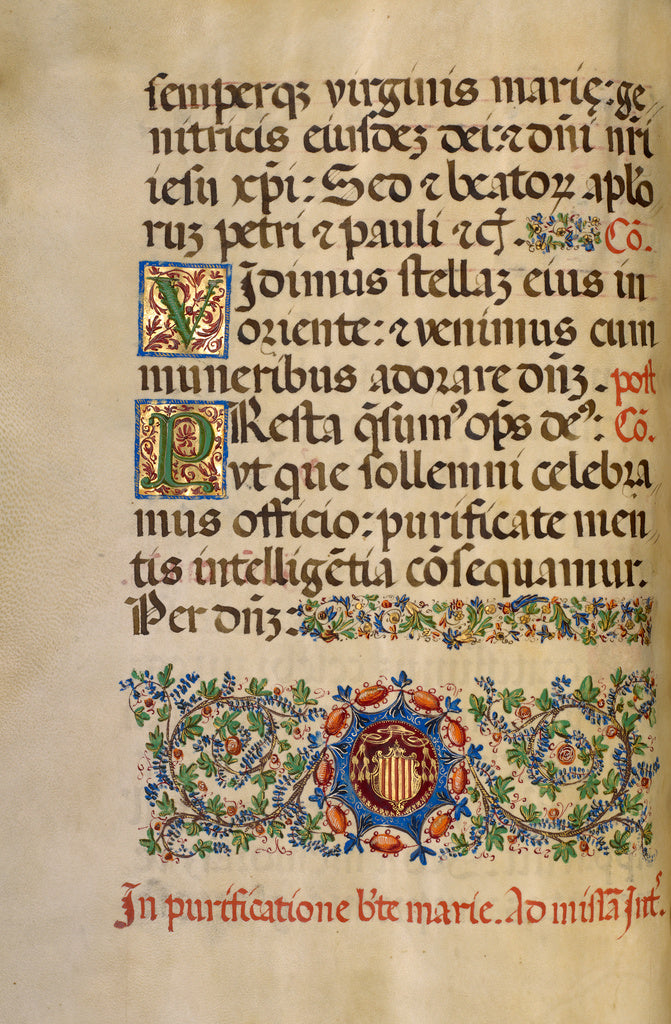 semperqꝫ virginis marię: ge
nitricis eiusdeꝫ dei: ⁊ dñi nr̃i
iesu xp̃i: Sed ⁊ beatoꝝ aplo
ruꝫ petri ⁊ pauli ⁊c̃. Cõ.
VIdimus stellaꝫ eius in
oriente: ⁊ venimus cum
muneribus adorare dñꝫ. post
PResta q̃sumꝰ op̃s deꝰ: Cõ.
vt que sollemni celebra
mus officio: purificate men
tis intelligẽtia cõsequamur.
Per dñꝫ:
In purificatione bte marie. Ad missã Int.